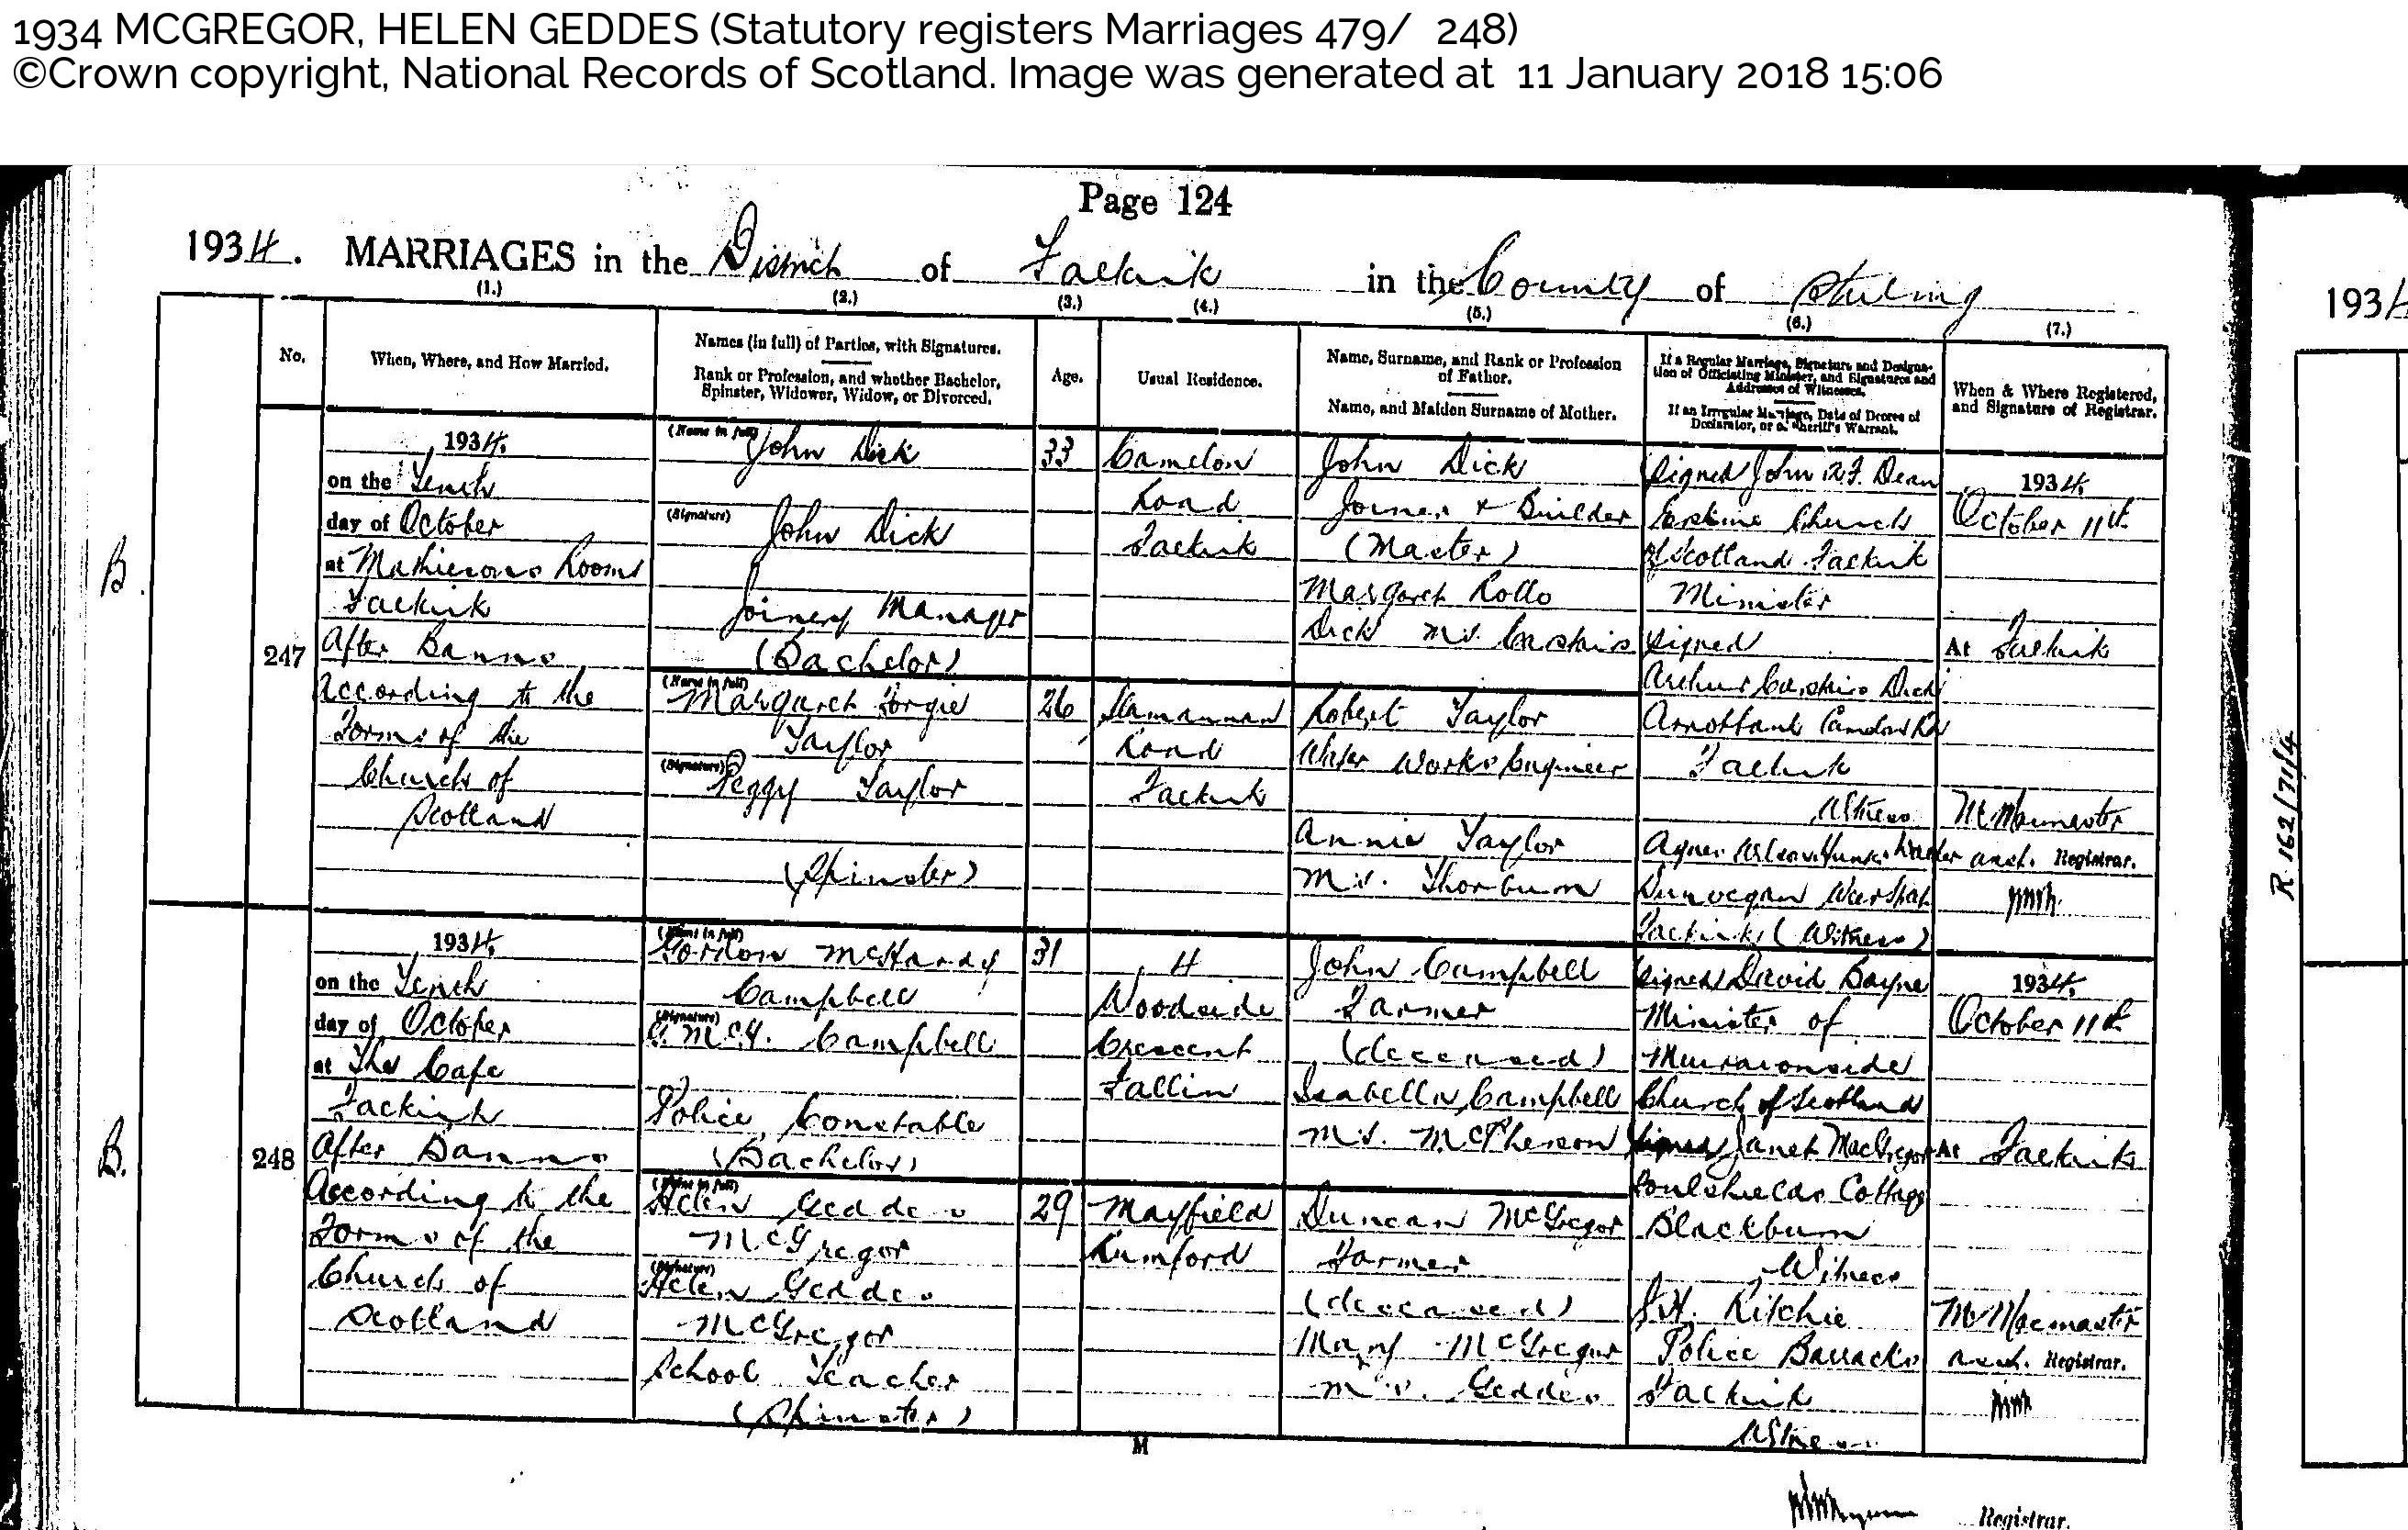 1934 MCGREGOR, HELEN GEDDES (Statutory registers Marriages 479/ 248)
©Crown copyright, National Records of Scotland. Image was generated at 11 January 2018 15:06
Page 124
1934. MARRIAGES in the District of Falkirk in the County of Stirling
(1.) (2.) (3.) (4.) (5.) (6.) (7.)
No.
When, Where, and How Married.
Names (in full) of Parties, with Signatures.
Rank or Profession, and whether Bachelor,
Spinster, Widower, Widow, or Divorced.
Age.
Usual Residence.
Name, Surname, and Rank or Profession
of Father.
Name, and Maiden Surname of Mother.
If a Regular Marriage, Signature and Designa-
tion of Officiating Minister, and Signatures and
Addresses of Witnesses.
If an Irregular Marriage, Date of Decree of
Declarator, or of Sheriff's Warrant.
When & Where Registered,
and Signature of Registrar.
B.
247
1934.
on the Tenth
day of October
at Mathiesons Rooms
Falkirk
After Banns
According to the
Forms of the
Church of
Scotland
(Name in full) John Dick
(Signature) John Dick
Joinery Manager
(Bachelor)
33
Camelon
Road
Falkirk
John Dick
Joiner & Builder
(Master)
Margaret Rollo
Dick M.S.
(Name in full)
Margaret Forgie
Taylor
(Signature)
Peggy Taylor
(Spinster)
26
Slamannan
Road
Falkirk
Robert Taylor
Water Works Engineer
Annie Taylor
M.S. Thorburn
Signed John Dean
Erskine Church
of Scotland Falkirk
Minister
Signed
Arthur Dick
Arnotbank Camelon Rd
Falkirk
Witness
Agnes
Dunvegan
Falkirk (Witness)
1934.
October 11th
At Falkirk
M Macmaster
asst. Registrar.
B.
248
1934.
on the Tenth
day of October
at The Cafe
Falkirk
After Banns
According to the
Forms of the
Church of
Scotland
(Name in full)
Gordon McHardy
Campbell
(Signature)
G. McH. Campbell
Police Constable
(Bachelor)
31
4
Woodside
Crescent
Fallin
John Campbell
Farmer
(deceased)
Isabella Campbell
M.S. McPherson
(Name in full)
Helen Geddes
McGregor
(Signature)
Helen Geddes
McGregor
School Teacher
(Spinster)
29
Mayfield
Rumford
Duncan McGregor
Farmer
(deceased)
Mary McGregor
M.S. Geddes
Signed David Bayne
Minister of
Muiravonside
Church of Scotland
Signed Janet MacGregor
Foulshiels Cottage
Blackburn
Witness
J.H. Ritchie
Police Barracks
Falkirk
Witness
1934.
October 11th
At Falkirk
M Macmaster
asst. Registrar.
M
Registrar.
R 162/71/4
1934